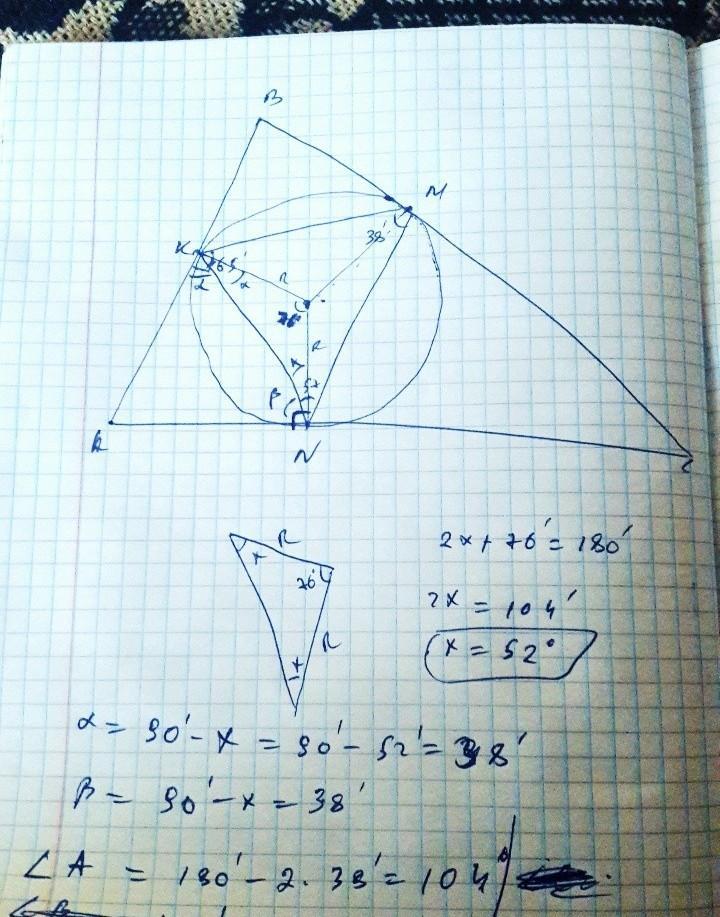 B
M
K
38'
65'
α
α
R
76'
R
x
β
52
A
N
C
R
x
76'
R
x
2x + 76' = 180'
2x = 104'
x = 52°
α = 90' - x = 90' - 52' = 38'
β = 90' - x = 38'
∠A = 180' - 2 · 38' = 104°